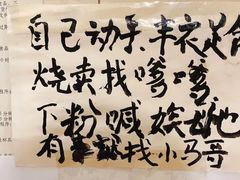 自己动手丰衣足食
烧卖找嗲嗲
下粉喊娭毑
有事找小马哥